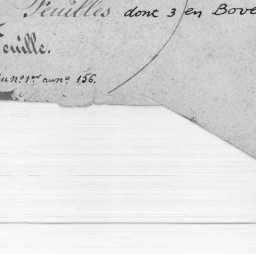 Feuilles dont 3 en Bove
Feuille.
un° 1er aun° 156.